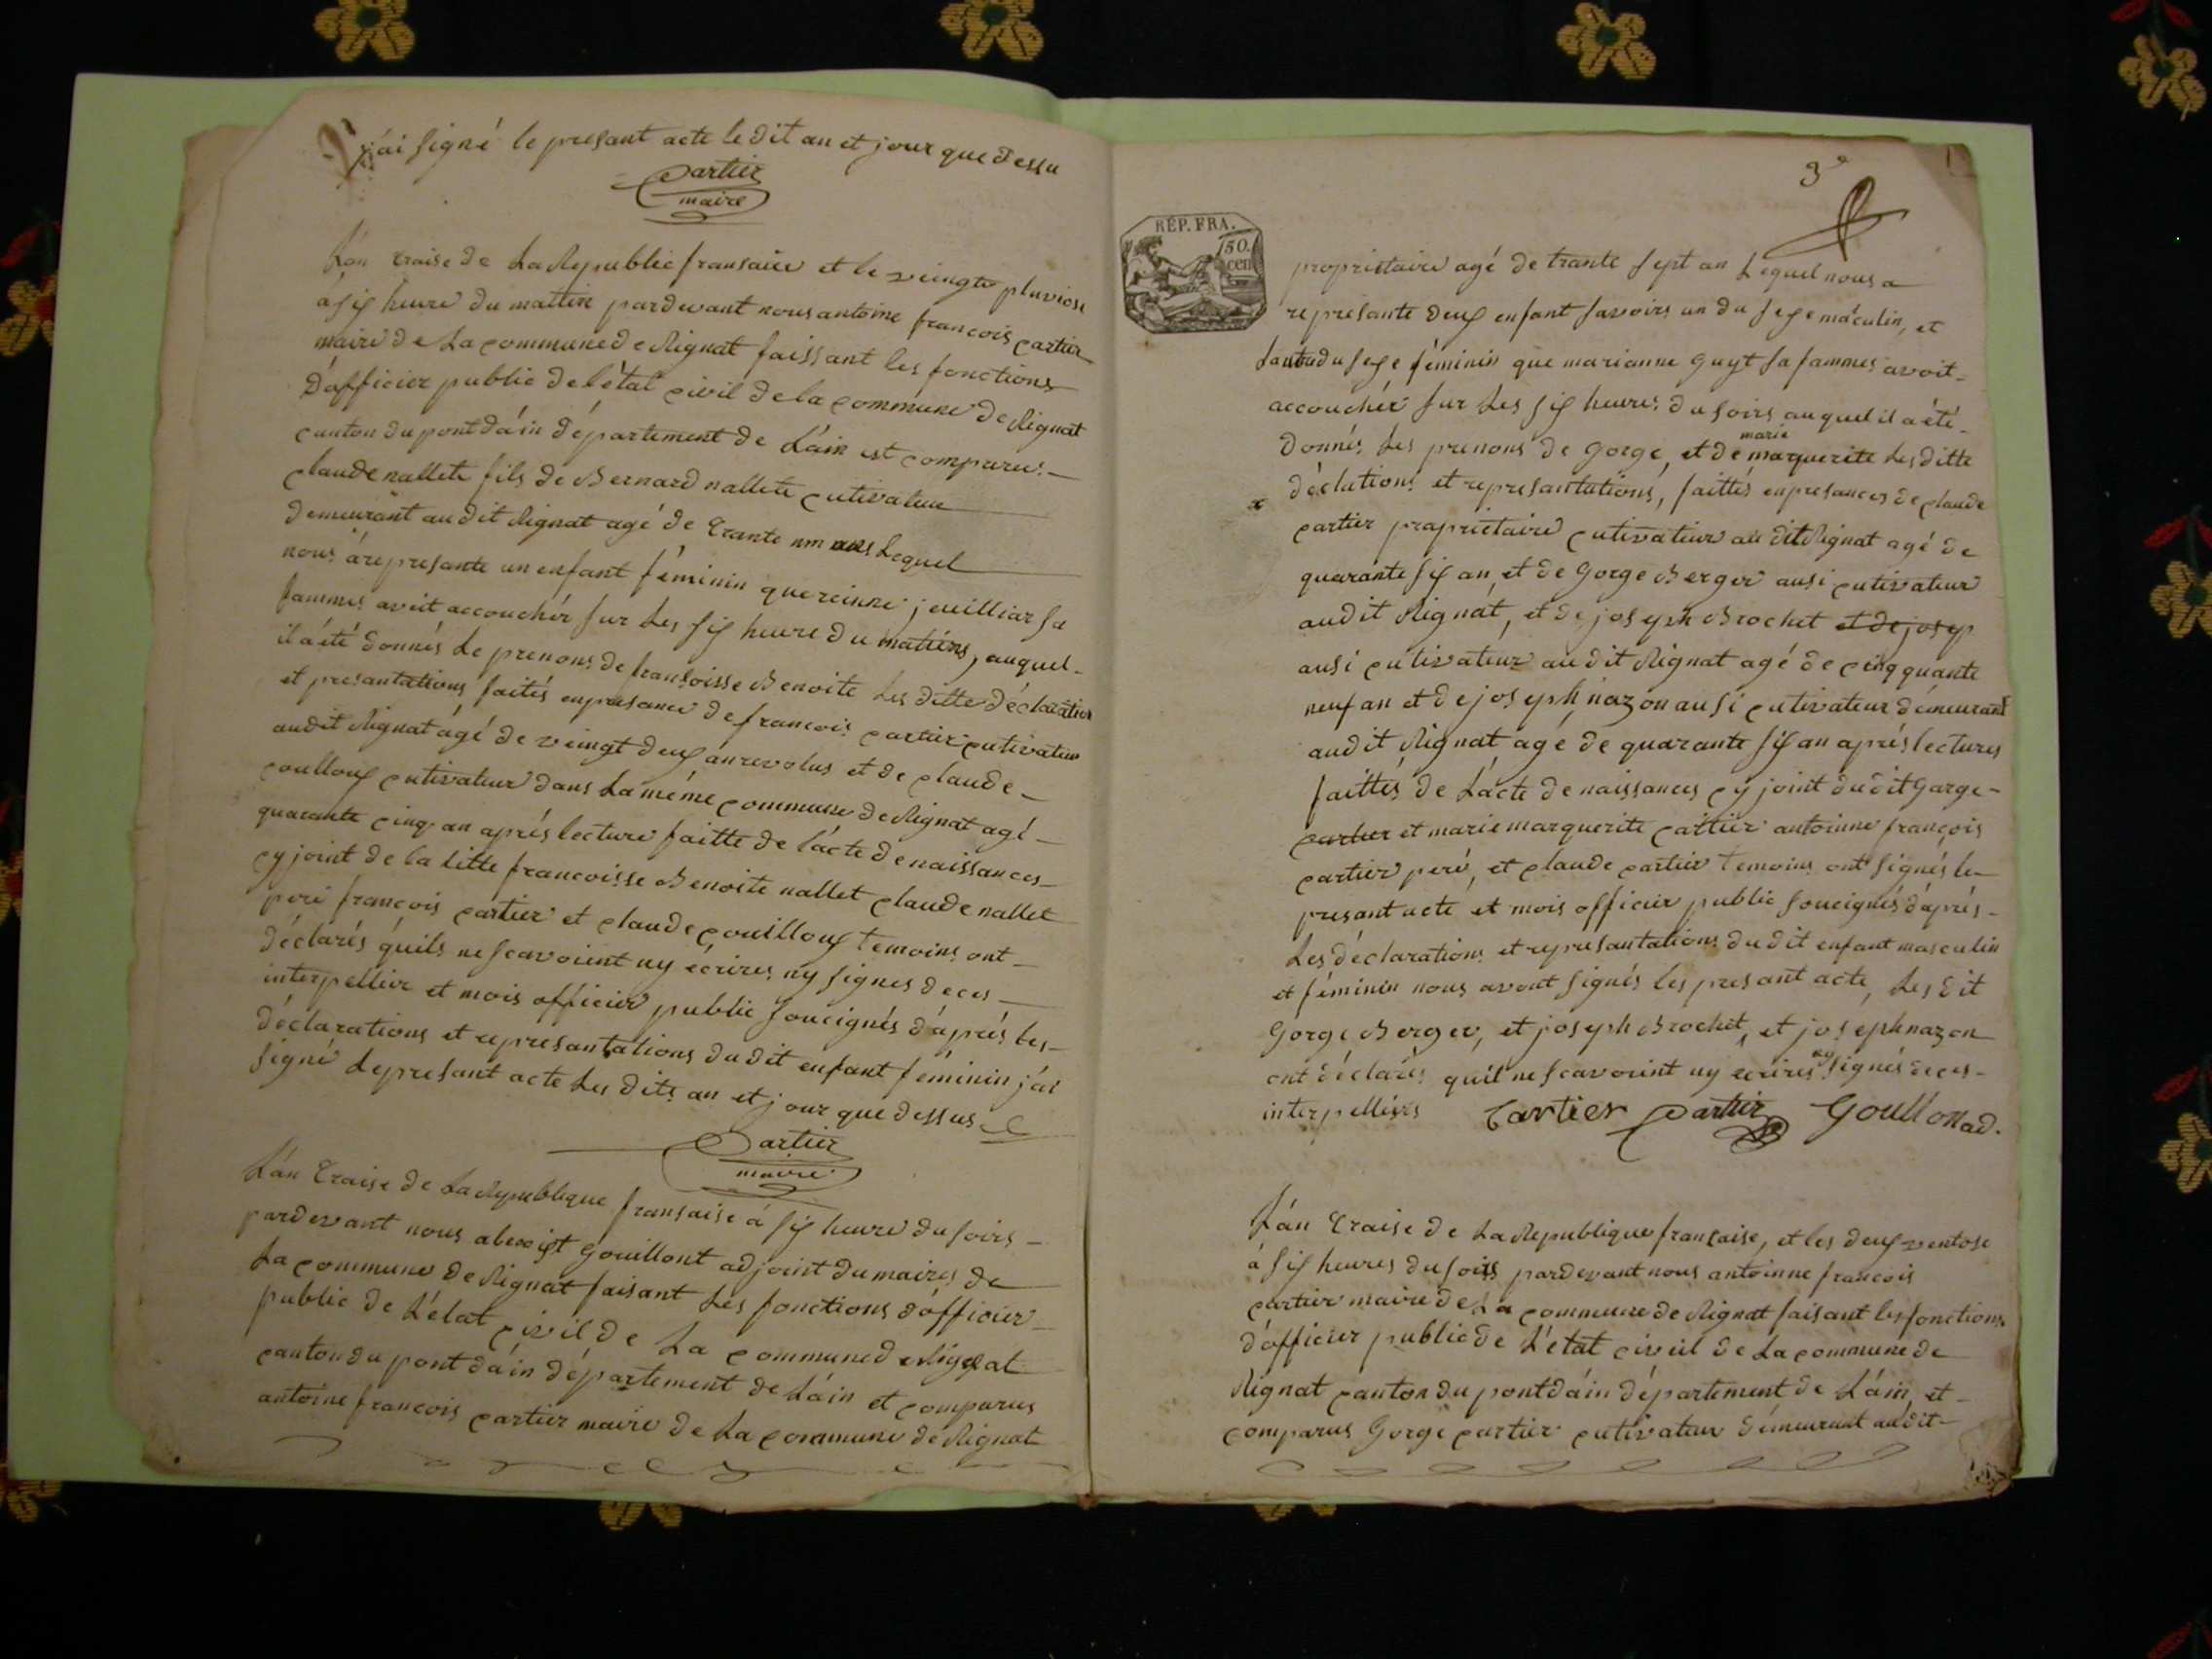 j'ai signé le presant acte le dit an et jour que dessu
Cartier
maire
L'an traise de La Republic fransaise et le veingte pluviose
à six heure du mattin pardevant nous antoine francois cartier
maire de La commune de Rignat faissant les fonctions
d'officier public de l'état civil de la commune de Rignat
canton du pont d'áin département de L'ain est comparu
claude nallete fils de Bernard nallete cutivateur
demeurant au dit Rignat agé de trante Lequel
nous á represante un enfant féminin que reinne jeuilliar sa
fammes avoit accouchér sur Les six heure du matiens, auquel
il a été donnés Le prenons de fransoisse Benoite Les ditte déclaration
et presantations faités enpresance de francois cartier cutivateur
audit Rignat ágé de veingt deux an revolus et de claude
coulloux cutivateur dans La méme commune de Rignat agé
quarante cinq an aprés lecture faitte de l'ácte de naissances
cy joint de la ditte francoisse Benoite nallet claude nallet
peré francois cartier et claude couilloux temoins ont
déclarés quils ne scavoient ny écrires ny signes de ces
interpellier et mois officier public soucignés d'áprés les
déclarations et represantations du dit enfant féminin j'ai
signé Le presant acte Les dits an et jour que dessus
Cartier
maire
L'án traise de La Republique fransaise á six heure du soirs
pardevant nous alexist Gouillont adjoint du maires de
La commune de Rignat faisant Les fonctions d'officier
public de L'état civil de La commune de Rignat
canton du pont d'áin département de L'áin et comparus
antoine francois cartier maire de La commune de Rignat
3e
RÉP. FRA.
50.
cen
proprietaire agé de trante sept an Lequel nous a
represante deux enfant savoirs un du sexe máculin, et
Lautre du sexe féminin que marianne Guyt sa fammes avoit
accouchér sur Les six heures du soirs auquel il a été
donnés Les prenons de Gorge, et de marie marguerite Les ditte
déclations et represantations, faittés enpresances de claude
cartier propriétaire cutivateur au dit Rignat agé de
quarante six an, et de Gorge Berger ausi cutivateur
audit Rignat, et de joseph Brochet et de josep
ausi cutivateur au dit Rignat agé de cinqquante
neuf an et de joseph nazon ausi cutivateur démeurant
audit Rignat agé de quarante six an aprés lectures
faittés de L'ácte de naissances cy joint du dit Garge
cartier et marie marguerite cartier antoinne françois
cartier peré, et claude cartier temoins ont signés le
presant acte et mois officier public soucignés d'áprés
Les déclarations et represantations du dit enfant masculin
et féminin nous avont signés les presant acte, Les dit
Gorge Berger, et joseph Brochet, et joseph nazon
ont déclarés quil ne scavoient ny écrires ny signés de ces
interpelliers Cartier Cartier Goullon ad.
L'án traise de La Republique française, et les deux ventose
á six heures du soirs pardevant nous antoinne francois
cartier maire de La commune de Rignat faisant les fonctions
d'officier public de L'état civil de La commune de
Rignat canton du pont d'áin département de L'áin, et
comparus Gorge cartier cutivateur démeurant au dit